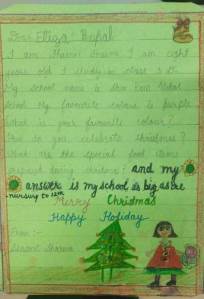 Dear Eliza Nepal
I am Sharni Sharma I am eight
years old I study in class 3 B.
My school name is Shri Ram Global
School My favourite colour is purple
What is your favourite colour?
How do you celebrate christmas?
What are the special food items
prepared during christmas? and my
answer is my school is big as are
nursury to 12th
Merry Christmas
Happy Holiday
From :-
Sharma